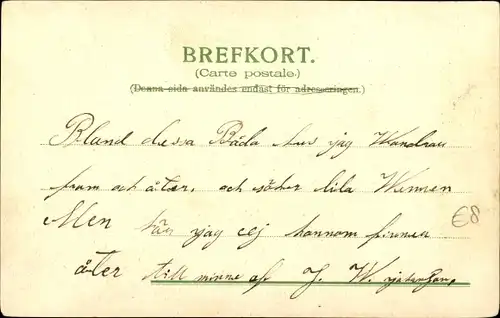 BREFKORT.
(Carte postale.)
(Denna sida användes endast för adresseringen.)
Bland dessa Båda har jag Wandrat
fram och åter, och söker lila Wennen
€8
Men kan jag ej honnom finnen
åter till minne af J. W.